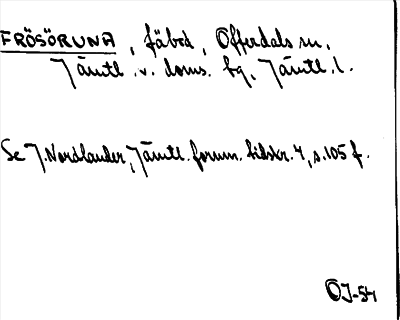 FRÖSÖRUNA, fäbod, Offerdals sn.
Jämtl. v. doms. fg, Jämtl. l.
Se J. Nordlander, Jämtl. fornm. tidskr. 4, s. 105 f.
ÖJ-54